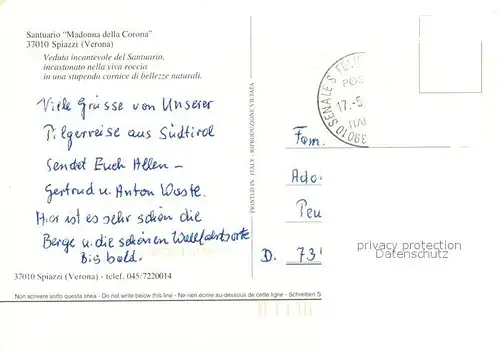 Santuario "Madonna della Corona"
37010 Spiazzi (Verona)
Veduta incantevole del Santuario,
incastonato nella viva roccia
in una stupenda cornice di bellezze naturali.
Viele Grüsse von Unserer
Pilgerreise aus Südtirol
sendet Euch Allen -
Gertrud u. Anton
Hier ist es sehr schön die
Berge u. die schönen Wallfahrtsorte
Bis bald.
37010 Spiazzi (Verona) - telef. 045/7220014
Non scrivere sotto questa linea - Do not write below this line - Ne rien écrire au-dessous de cette ligne - Schreiben S
PRINTED IN ITALY - RIPRODUZIONE VIETATA
39010 SENALE S. FELI
17.-5
Fam.
Ado
Peu
D. 73
privacy protection
Datenschutz